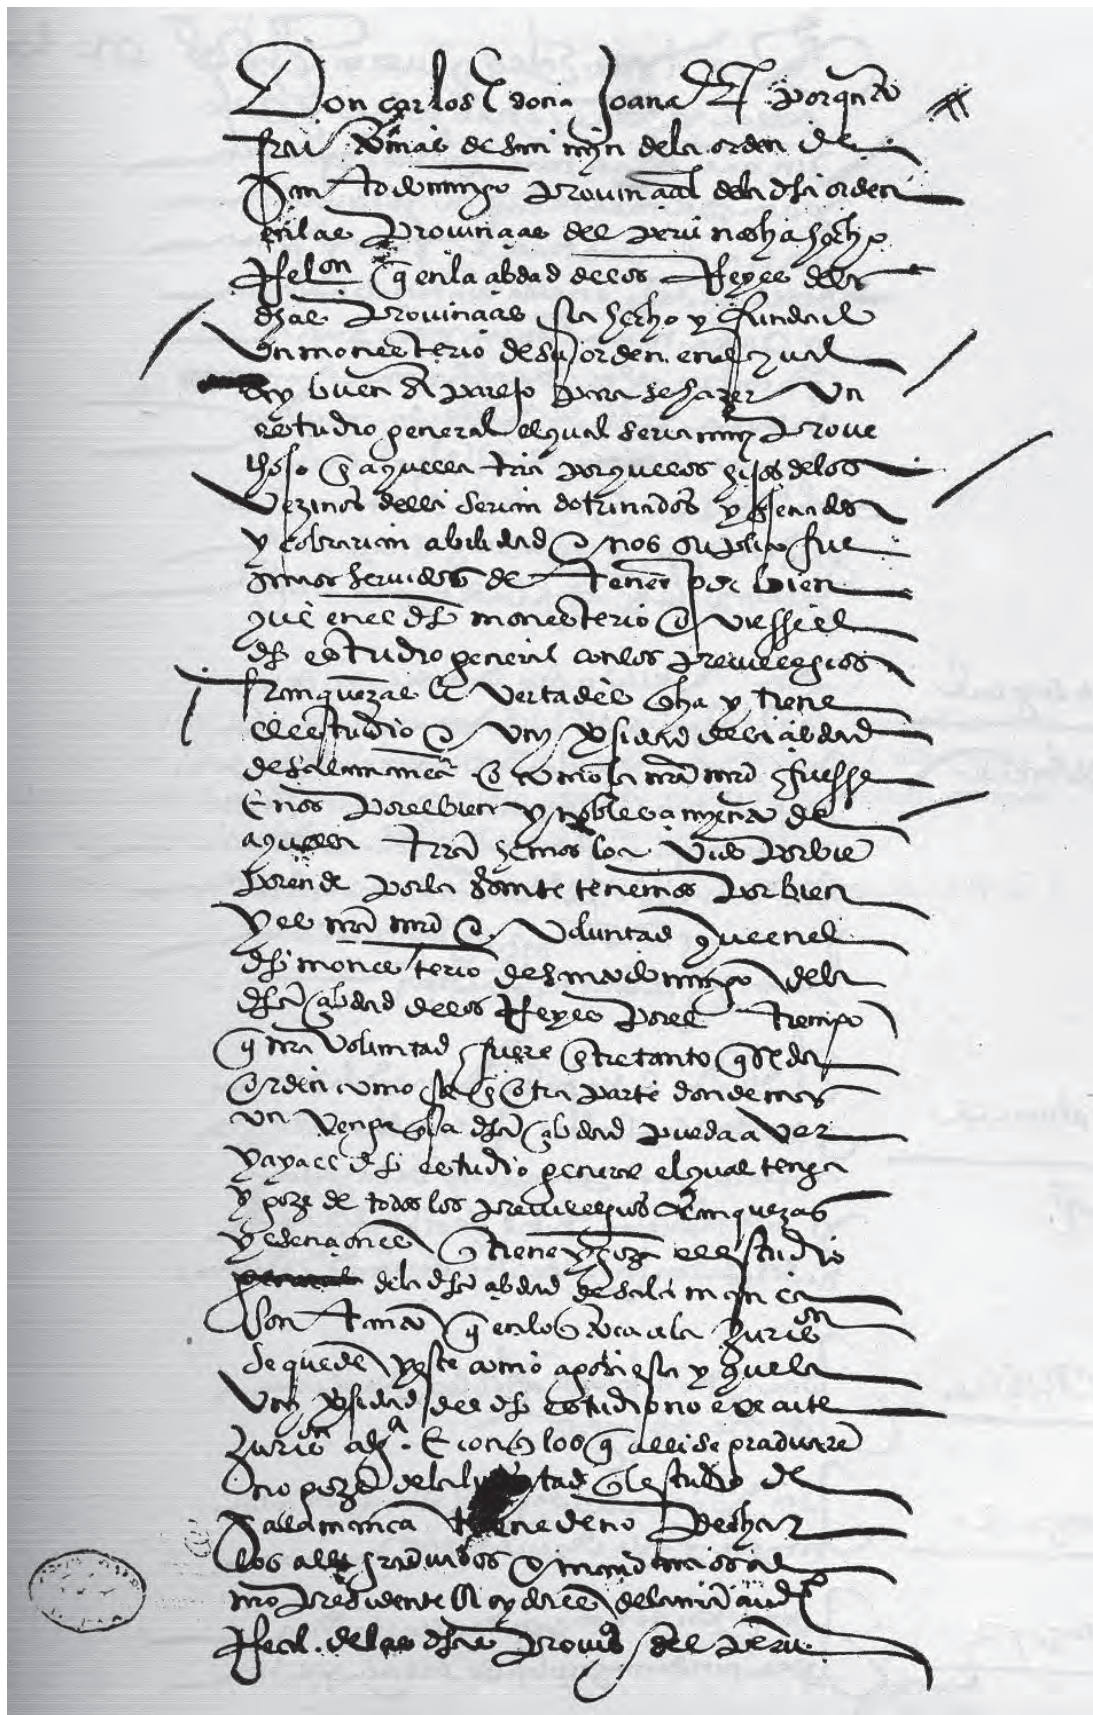 Don carlos e doña Joana etc porqnto
frai tomas de san mĩn dela orden de
Santo domingo provincial dela dha orden
enlas Provincias del Peru nos ha hecho
Relon q en la cibdad delos Reyes delas
dhas Provincias sta hecho y fundado
un monesterio de su orden enel qual
ay buen aparejo para se hazer un
estudio general el qual seria muy prove
choso en aquella trra porque los hijos delos
vezinos della serian dotrinados y enseñados
y cobrarian abilidad e nos suplico fue
semos servidos de tener por bien
que enel dho monesterio oviesse el
dho estudio general con los previllegios
franquezas e libertades q ha y tiene
el estudio e universidad dela cibdad
de salamanca o como la nra mrd fuesse
E nos por el bien y noblescimiento de
aquella trra hemos lo avido por bie
Porende por la presente tenemos por bien
y es nra mrd e voluntad que enel
dho monesterio de sancto domingo dela
dha cibdad delos Reyes por el tiempo
q nra voluntad fuere entretanto q se da
orden como ste en otra parte donde mas
convenga en la dha cibdad pueda aver
y aya el dho estudio general el qual tenga
y goze de todos los previllegios franquezas
y esenciones q tiene y goza el estudio
general dela dha cibdad de salamanca
con tanto q enlo q toca ala Jurison
se quede y este como agora esta y que la
universidad del dho estudio no execute
Jurison alga. E con q los q alli se graduare
no gozen dela libertad q el estudio de
Salamanca tiene de no pechar
los alli graduados y mandamos al
nro presidente e oydores dela nra audª
Real. delas dhas Provias del Peru.